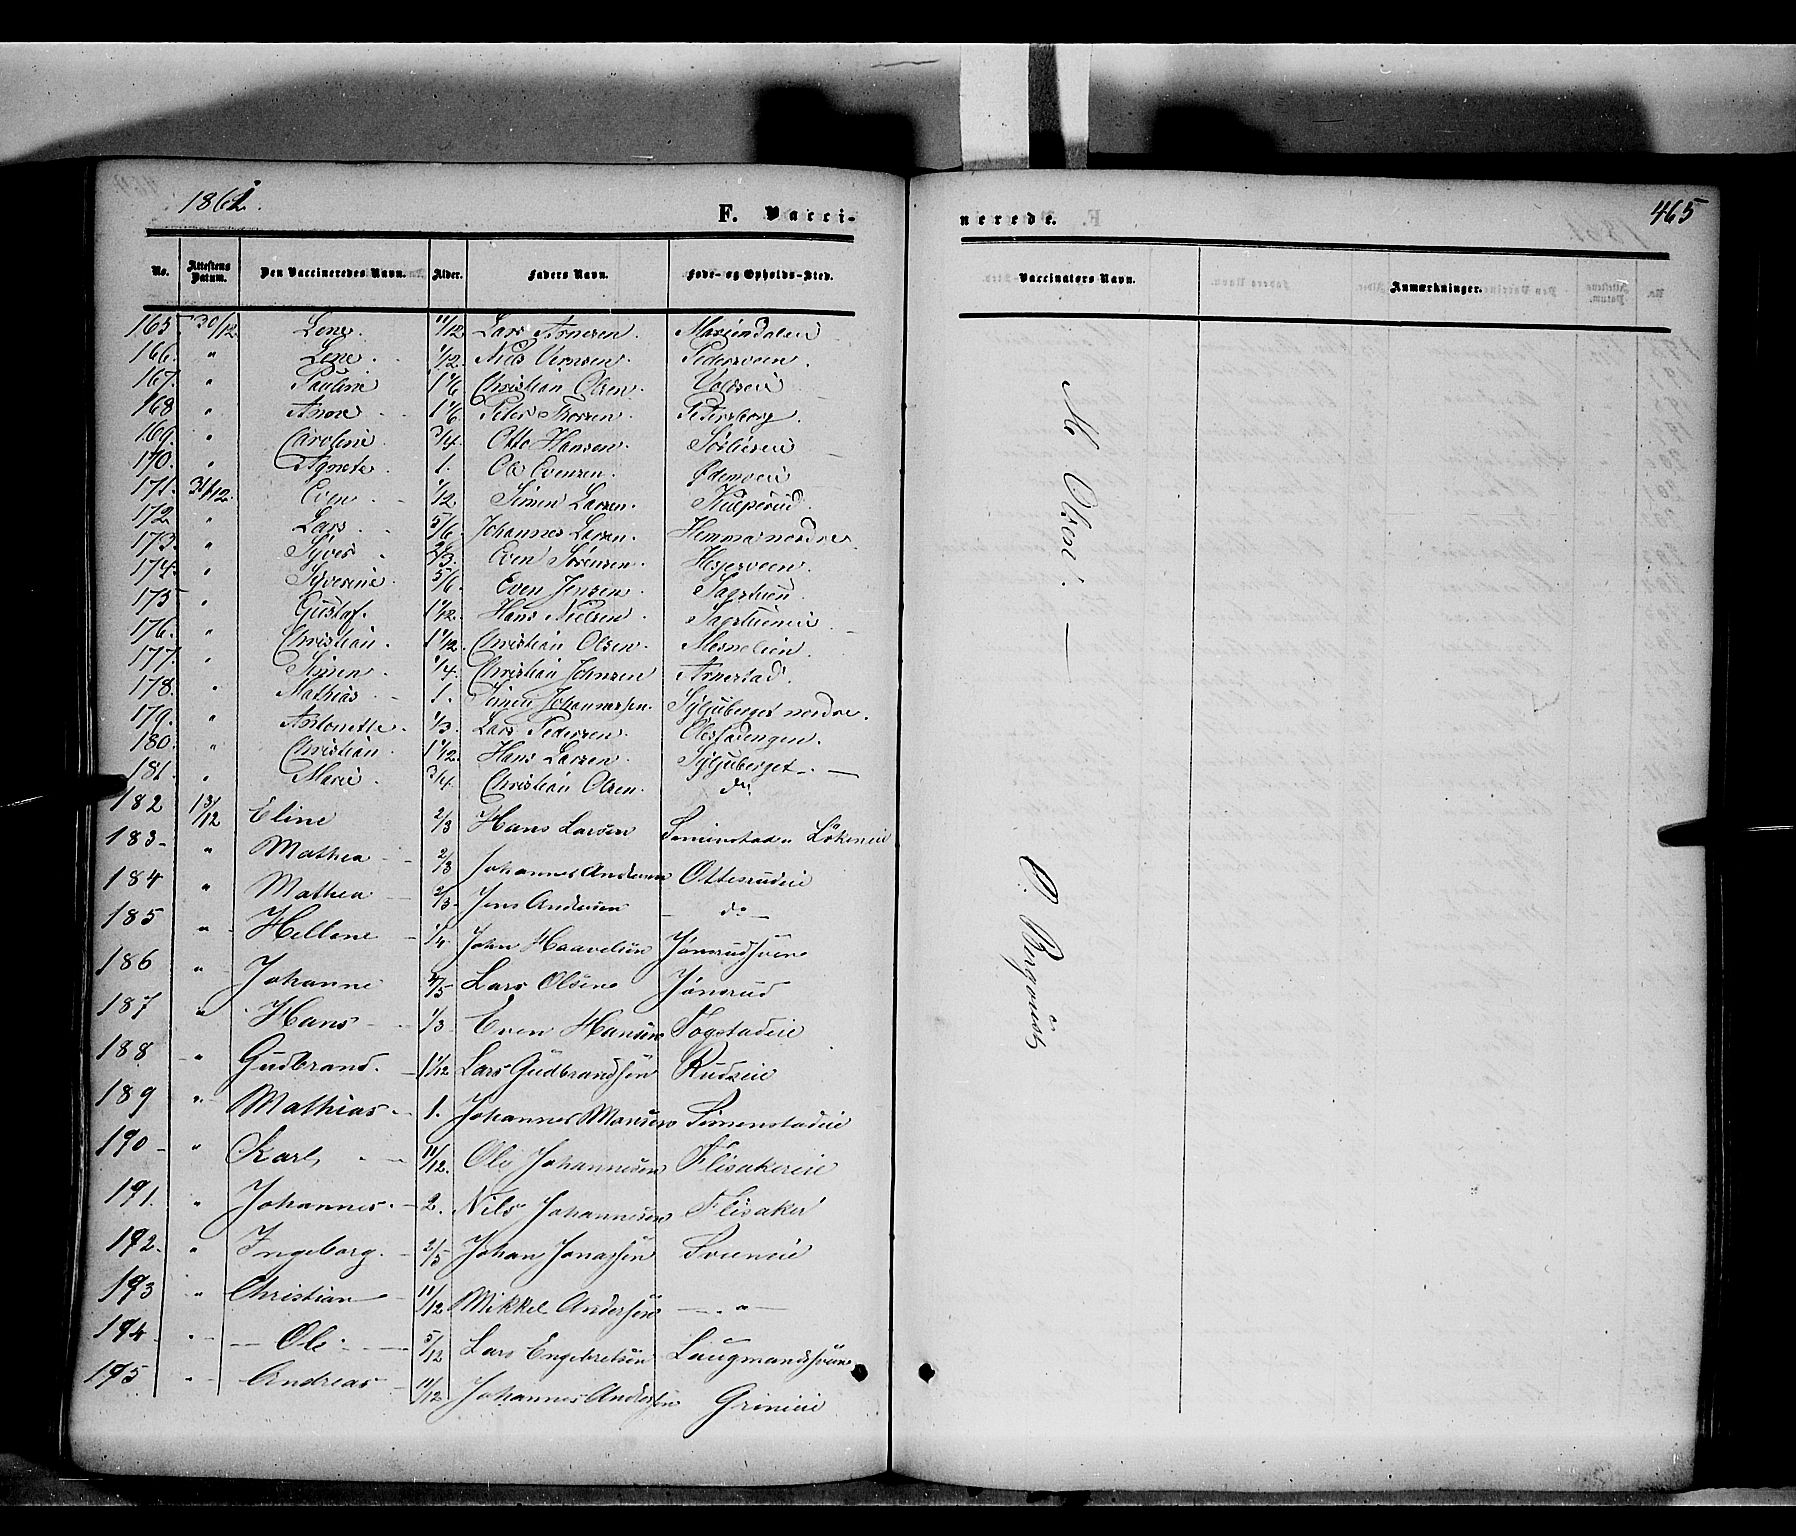 1861.
F. Vacci-
nerede.
465
No. Attestens Datum. Den Vaccineredes Navn. Alder. Faders Navn. Føde- og Opholds-Sted. Vaccinators Navn. Anmærkninger.
165. 30/12 Lene. 11/12 Lars Arnesen Mariendalen
166. " Lene. 1/12 Nils Iversen. Pedersveen.
167. " Pauline 1 1/6 Christian Olsen. Voldseie
168 " Anne 1 1/6 Peter Thorsen. Petersborg.
169. " Caroline 3/4. Otto Hansen.
170. " Agnete 1. Ole Evensen. Ødenveie
171. 31/12. Even 1/12. Simen Larsen. Kulperud.
172 " Lars 5/6 Johannes Larsen. Hemma nordre.
173. " Syver 2/3. Even Sørensen. Hesjeveen.
174. " Syverine. 5/6. Even Jensen. Sagstuen.
175 " Gustaf. 1 1/12. Hans Nielsen. Sagstueneie
176. " Christian. 1 1/12. Christian Olsen. Mesnelien.
177. " Simen 1/4. Christian Johnsen Arnestad.
178. " Mathias 1. Simen Johannessen. Syljuberget nordre.
179. " Antonette. 1/3. Lars Pedersen. Olestadengen.
180. " Christian. 1 1/12. Hans Larsen. Syljuberget.
181. " Marie. 3/4 Christian Olsen. do.
M. Olsen. —
182 13/12 Eline 2/3 Hans Larsen Simenstaden Lökeneie
183- " Mathea 2/3 Johannes Andersen Otterudeie
184 " Mathea 2/3 Jens Andersen do
185 " Hellene 1/4. John Haavelsen Jönsrudsveen
186 " Johanne 4/5 Lars Olsen Jönsrud
187 " Hans 1/3 Even Hansen Fogstadeie
188 " Gudbrand. 1 1/12 Lars Gudbrandsen Rudseie
189 " Mathias 1. Johannes Monsen Simenstadeie
190- " Karl, 11/12. Ole Johannesen Flisakereie
191. " Johannes. 2. Nils Johannesen Flisaker
192. " Ingeborg. 2/5 Johan Jonassen Sveneie
193 " Christian 11/12 Mikkel Andersen — " —
194 " Ole 5/12 Lars Engebretsen Laugmandssveen
195 " Andreas 11/12 Johannes Andersen Grineeie
O. Bergqvist